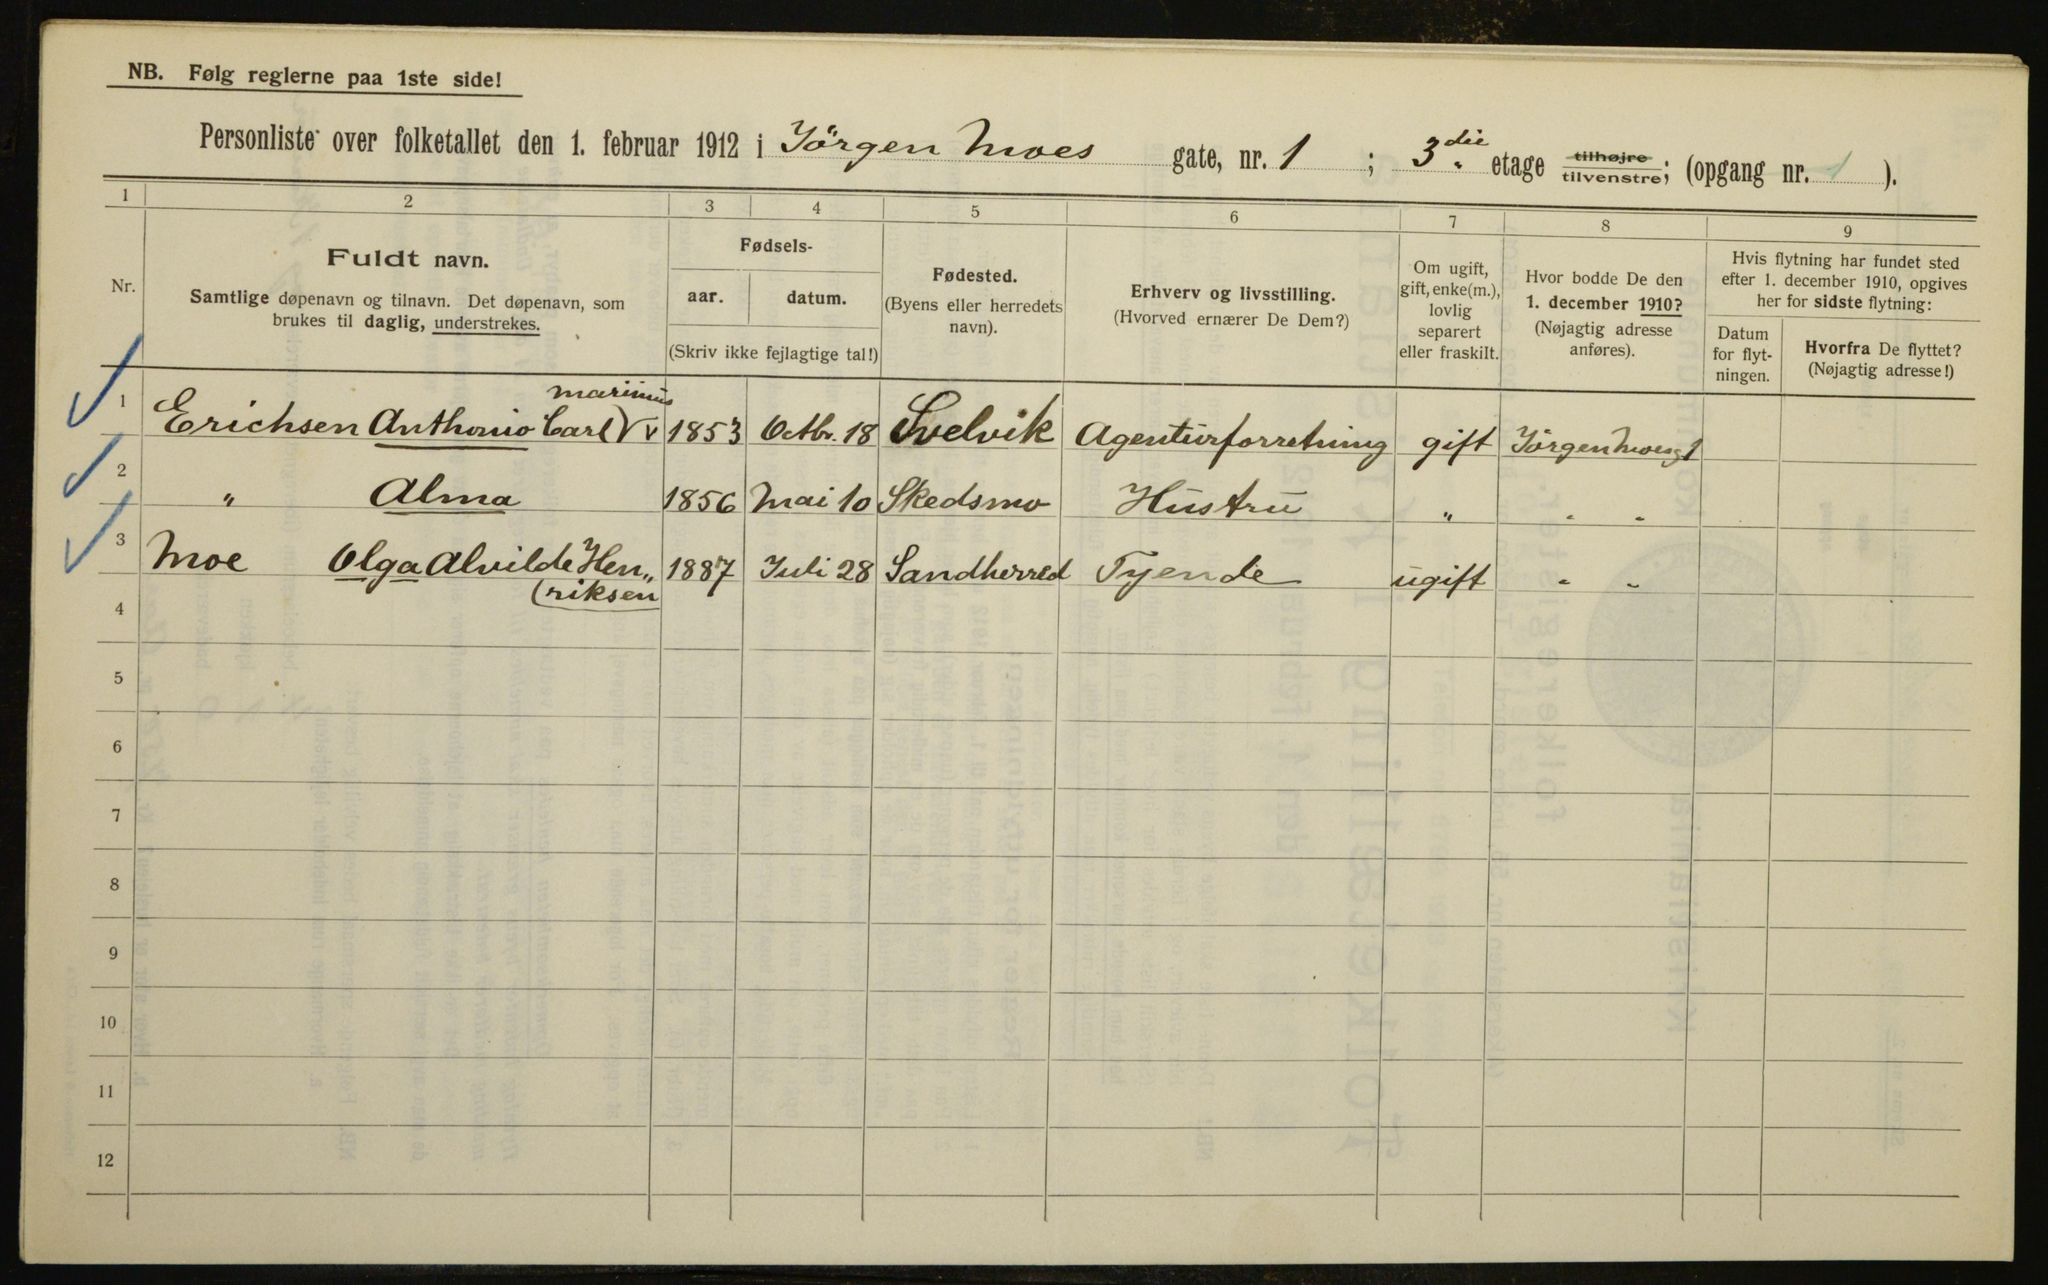 NB. Følg reglerne paa 1ste side!
Personliste over folketallet den 1. februar 1912 i Jörgen Moes gate, nr. 1 ; 3die etage tilhøjre tilvenstre; (opgang nr. 1 ).
1 2 3 4 5 6 7 8 9
Nr.
Fuldt navn.
Samtlige døpenavn og tilnavn. Det døpenavn, som
brukes til daglig, understrekes.
Fødsels-
aar. datum.
(Skriv ikke fejlagtige tal!)
Fødested.
(Byens eller herredets
navn).
Erhverv og livsstilling.
(Hvorved ernærer De Dem?)
Om ugift,
gift, enke(m.),
lovlig
separert
eller fraskilt.
Hvor bodde De den
1. december 1910?
(Nøjagtig adresse
anføres).
Hvis flytning har fundet sted
efter 1. december 1910, opgives
her for sidste flytning:
Datum
for flyt-
ningen.
Hvorfra De flyttet?
(Nøjagtig adresse!)
marinius
1 Erichsen Anthonio Carl 1853 Octbr. 18 Svelvik Agenturforretning gift Jörgen Moesg 1
2 " Alma 1856 Mai 10 Skedsmo Hustru " " "
3 Moe Olga Alvilde Hen„ 1887 Juli 28 Sandherred Tyende ugift " "
(riksen
4
5
6
7
8
9
10
11
12